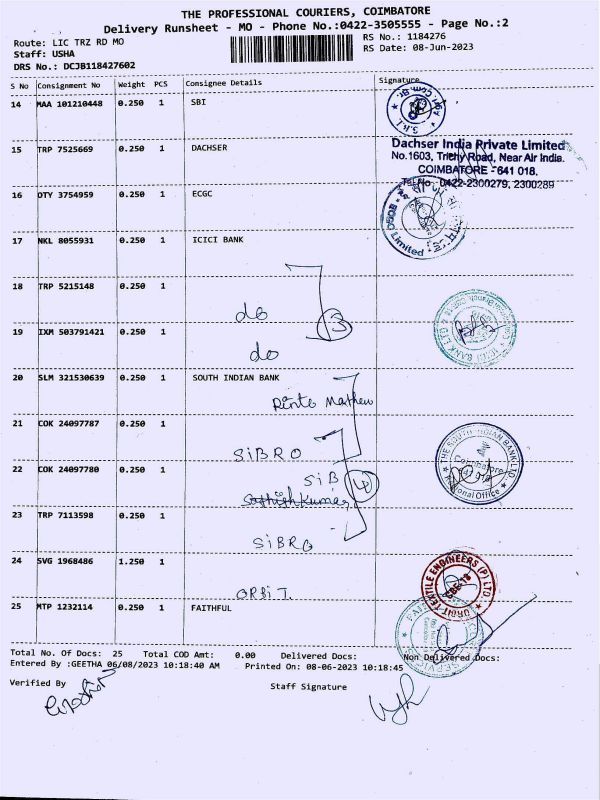 THE PROFESSIONAL COURIERS, COIMBATORE
Delivery Runsheet - MO - Phone No.:0422-3505555 - Page No.:2
Route: LIC TRZ RD MO
RS No.: 1184276
Staff: USHA
RS Date: 08-Jun-2023
DRS No.: DCJB118427602
S No Consignment No Weight PCS Consignee Details Signature
14 MAA 101210448 0.250 1 SBI
15 TRP 7525669 0.250 1 DACHSER
Dachser India Private Limited
No.1603, Trichy Road, Near Air India.
COIMBATORE - 641 018.
Tel No: 0422-2300279, 2300289
16 OTY 3754959 0.250 1 ECGC
ECGC Limited
17 NKL 8055931 0.250 1 ICICI BANK
18 TRP 5215148 0.250 1
do
3
ICICI BANK LTD
19 IXM 503791421 0.250 1
do
20 SLM 321530639 0.250 1 SOUTH INDIAN BANK
Rinto Mathew
21 COK 24097787 0.250 1
SIBRO
THE SOUTH INDIAN BANK LTD
Coimbatore
Regional Office
22 COK 24097780 0.250 1
SIB
4
Sathish Kumar
23 TRP 7113598 0.250 1
SIBRO
24 SVG 1968486 1.250 1
ORBIT
ORBIT TEXTILE ENGINEERS (P) LTD
CBE-18
25 MTP 1232114 0.250 1 FAITHFUL
Total No. Of Docs: 25 Total COD Amt: 0.00 Delivered Docs: Non Delivered Docs:
Entered By :GEETHA 06/08/2023 10:18:40 AM Printed On: 08-06-2023 10:18:45
Verified By
Staff Signature